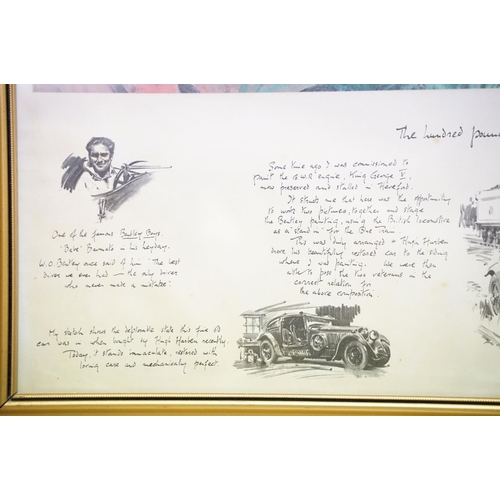 The hundred pound
Some time ago I was commissioned to
paint the G.W.R engine, King George V,
now preserved and stabled in Hereford.
It struck me that here was the opportunity
to work two pictures together and stage
the Bentley painting, using the British locomotive
as a 'stand in' for the Blue Train
This was duly arranged & Hugh Harben
drove his beautifully restored car to the siding
where I was painting. We were then
able to pose the two veterans in the
correct relation for
the above composition.
One of the famous Bentley Boys
'Babe' Barnato in his heyday.
W.O. Bentley once said of him "The best
driver we ever had — the only driver
who never made a mistake."
My sketch shows the deplorable state this fine old
car was in when bought by Hugh Harben recently.
Today, it stands immaculate, restored with
loving care and mechanically perfect